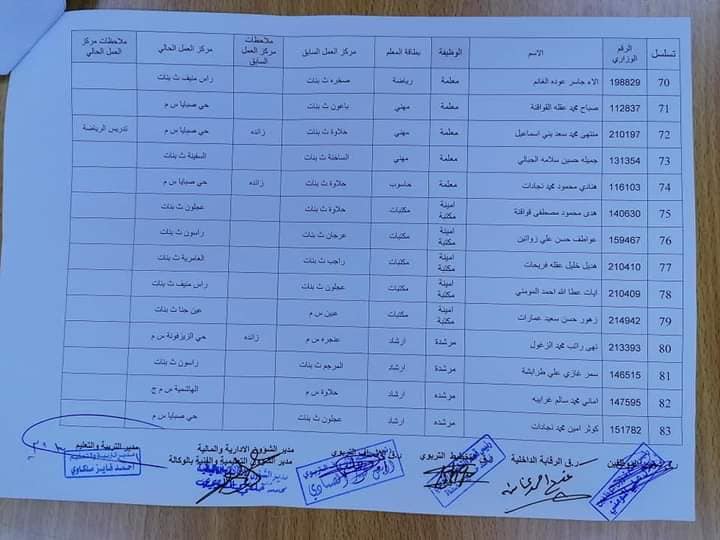 تسلسل الرقم الوزاري الاسم الوظيفة بطاقة المعلم مركز العمل السابق ملاحظات مركز العمل السابق مركز العمل الحالي ملاحظات مركز العمل الحالي
70 198829 الاء جاسر عوده الغانم معلمة رياضة صخره ث بنات راس منيف ث بنات
71 112837 صباح محمد عقله القواقنة معلمة مهني باعون ث بنات حي صبايا س م
72 210197 منتهى محمد سعد بني اسماعيل معلمة مهني حلاوة ث بنات زائده حي صبايا س م تدريس الرياضة
73 131354 جميله حسين سلامه الجبالي معلمة مهني الساخنة ث بنات السفينة ث بنات
74 116103 هنادي محمود محمد نجادات معلمة حاسوب حلاوة ث بنات زائده حي صبايا س م
75 140630 هدى محمود مصطفى قواقنة امينة مكتبة مكتبات حلاوة ث بنات عجلون ث بنات
76 159467 عواطف حسن علي زواتين امينة مكتبة مكتبات عرجان ث بنات راسون ث بنات
77 210410 هديل خليل عقله فريحات امينة مكتبة مكتبات راجب ث بنات العامرية ث بنات
78 210409 ايات عطا الله احمد المومني امينة مكتبة مكتبات عجلون ث بنات راس منيف ث بنات
79 214942 زهور حسن سعيد عمارات امينة مكتبة مكتبات عبين س م عين جنا ث بنات
80 213393 نهى راتب محمد الزغول مرشدة ارشاد عنجره س م زائده حي الزيزفونة س م
81 146515 سمر غازي علي طرابشة مرشدة ارشاد المرجم ث بنات راسون ث بنات
82 147595 اماني محمد سالم غرايبه مرشدة ارشاد حلاوة س م الهاشمية س م ج
83 151782 كوثر امين محمد نجادات مرشدة ارشاد عجلون ث بنات حي صبايا س م
ر.ق الرقابة الداخلية التربوي التربوي مدير الشؤون الادارية والمالية مدير التربية والتعليم
مدير الشؤون التعليمية والفنية بالوكالة
احمد فايز